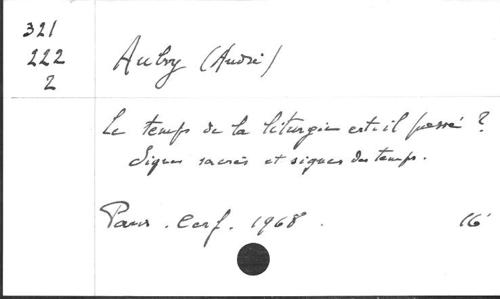 321
222
2
Aubry (André)
Le temps de la liturgie est-il passé ?
Signes sacrés et signes des temps.
Paris. Cerf. 1968. 16°